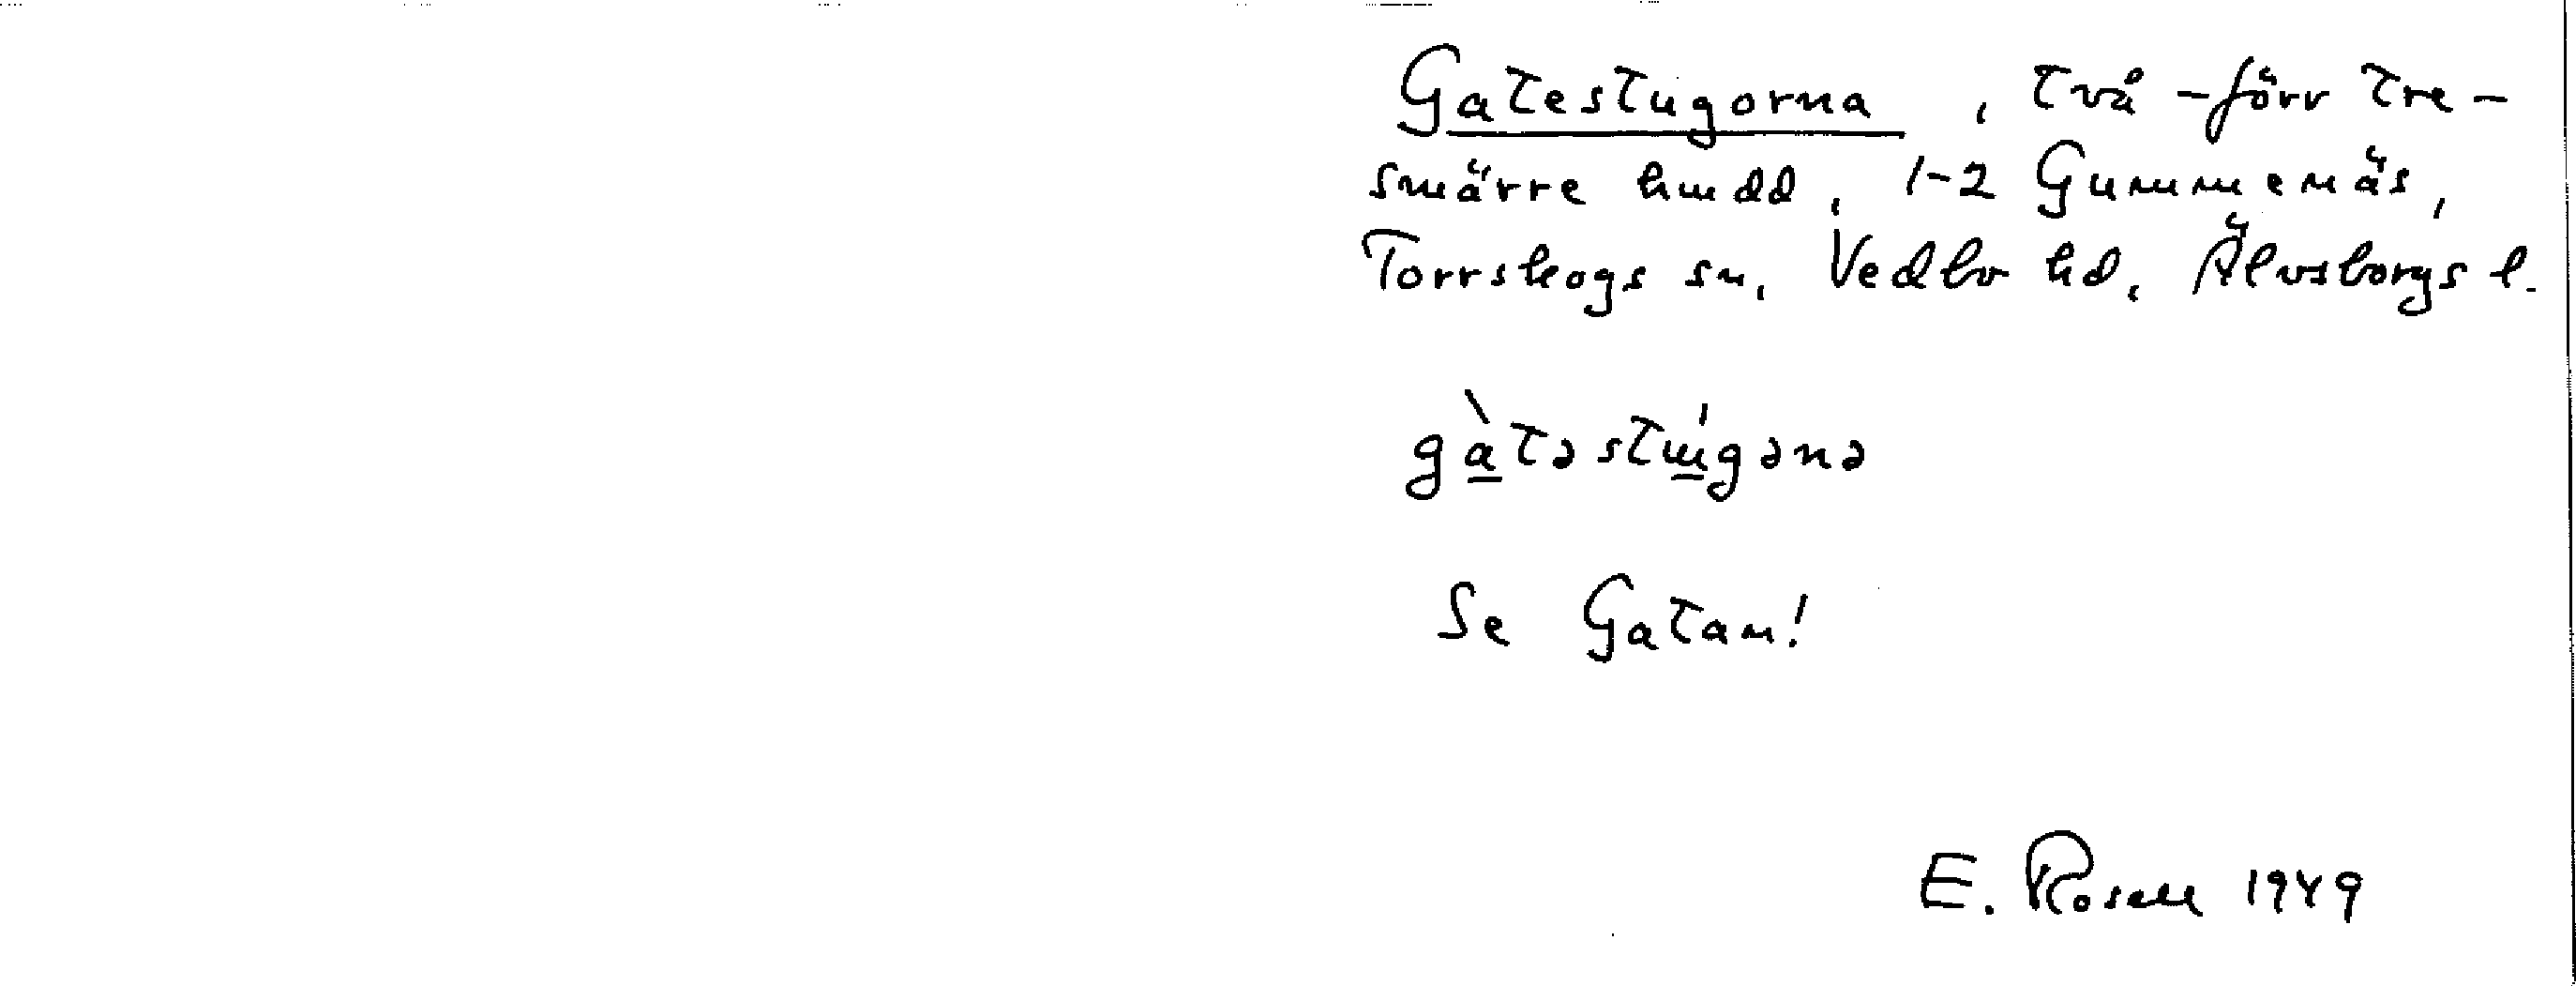 Gatestugorna, två - förr tre -
smärre hmdd, 1-2 Gummenäs,
Torrskogs sn, Vedbo hd, Älvsborgs l.
gàtəstɯ́gənə
Se Gatan!
E. Rosell 1949